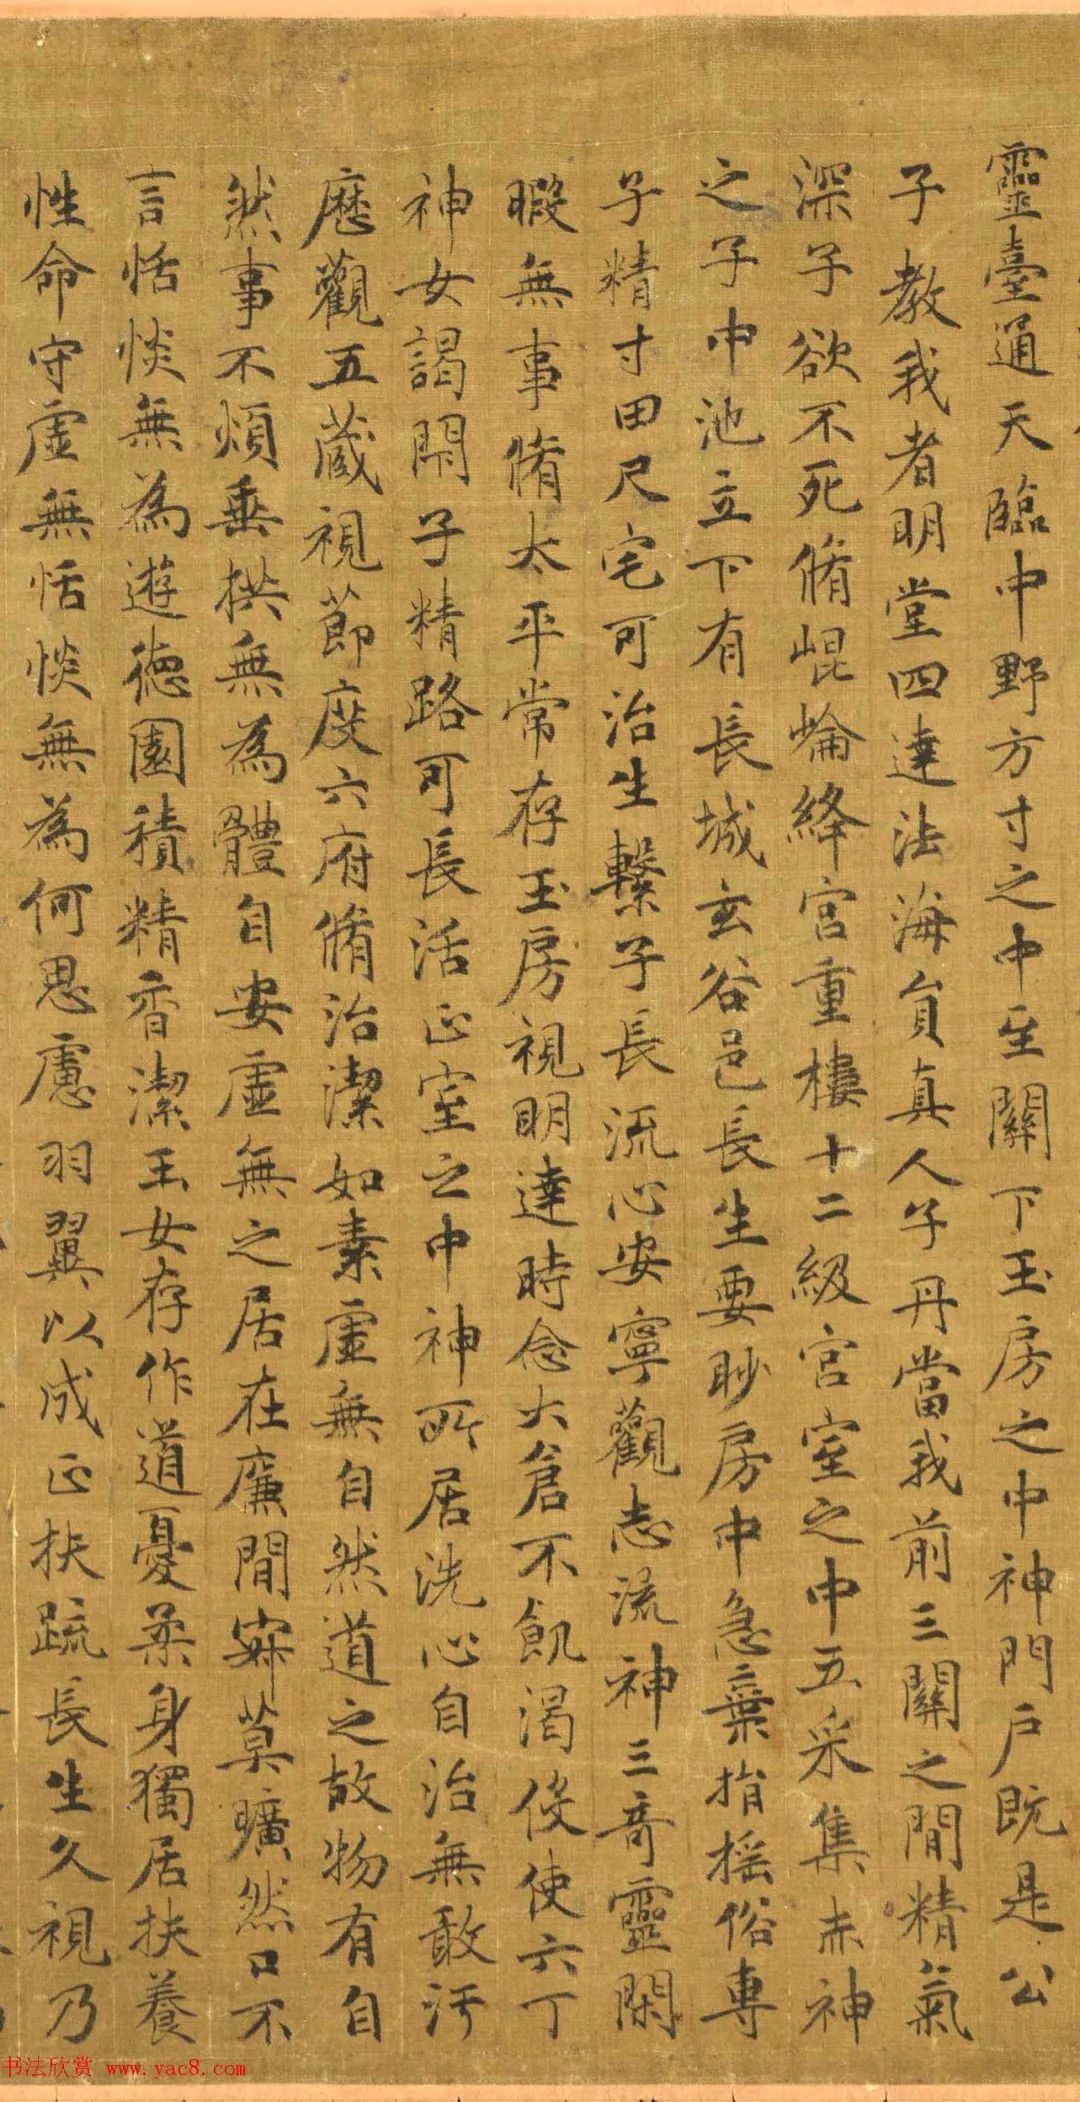 靈臺通天臨中野方寸之中至關下玉房之中神門戶既是公
子教我者明堂四達法海員真人子丹當我前三關之間精氣
深子欲不死脩崐崘絳宮重樓十二級宮室之中五采集赤神
之子中池立下有長城玄谷邑長生要眇房中急棄捐摇俗專
子精寸田尺宅可治生繫子長流心安寧觀志流神三奇靈閑
暇無事脩太平常存玉房視明達時念大倉不飢渴侵使六丁
神女謁閇子精路可長活正室之中神所居洗心自治無敢汙
歷觀五藏視節度六府脩治潔如素虛無自然道之故物有自
然事不煩垂拱無為體自安虛無之居在廉間寂莫曠然口不
言恬惔無為遊德園積精香潔玉女存作道憂柔身獨居扶養
性命守虛無恬惔無為何思慮羽翼以成正扶疏長生久視乃
书法欣赏 www.yac8.com